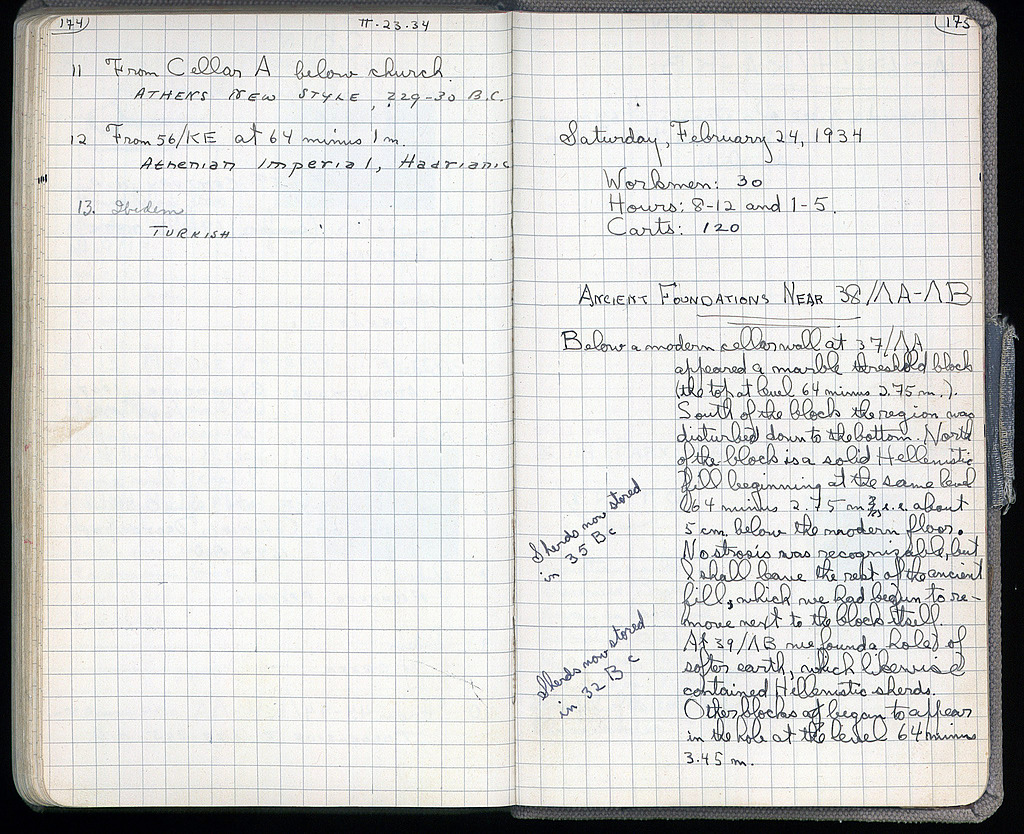 174
II-23-34
11 From Cellar A below church.
ATHENS NEW STYLE, 229-30 B.C.
12 From 56/KE at 64 minus 1 m.
Athenian Imperial, Hadrianic
13. Ibidem
TURKISH
175
Saturday, February 24, 1934
Workmen: 30
Hours: 8-12 and 1-5.
Carts: 120
ANCIENT FOUNDATIONS NEAR 38/ΛA-ΛB
Below a modern cellar wall at 37/ΛA
appeared a marble threshold block
(the top at level 64 minus 2.75 m.).
South of the block the region was
disturbed down to the bottom. North
of the block is a solid Hellenistic
fill beginning at the same level
(64 minus 2.75 m) i.e. about
5 cm. below the modern floor.
No strosis was recognizable, but
I shall leave the rest of the ancient
fill, which we had begun to re-
move next to the block itself.
At 39/ΛB we found a hole of
softer earth, which likewise
contained Hellenistic sherds.
Other blocks began to appear
in the hole at the level 64 minus
3.45 m.
Sherds now stored
in 35 B c
Sherds now stored
in 32 B c